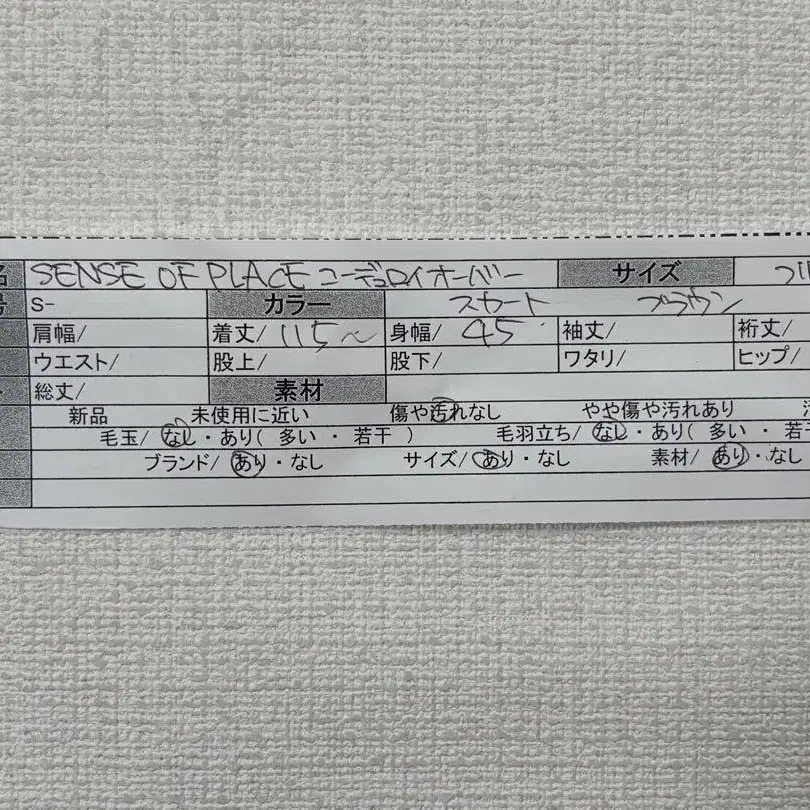 名 SENSE OF PLACE コーデュロイオーバー サイズ
号 S- カラー スカート ブラウン
肩幅/ 着丈/ 115～ 身幅/ 45 袖丈/ 裄丈/
ウエスト/ 股上/ 股下/ ワタリ/ ヒップ/
総丈/ 素材
新品 未使用に近い 傷や汚れなし やや傷や汚れあり
毛玉/ なし・あり( 多い ・ 若干 ) 毛羽立ち/ なし・あり( 多い ・ 若干
ブランド/ あり・なし サイズ/ あり・なし 素材/ あり・なし